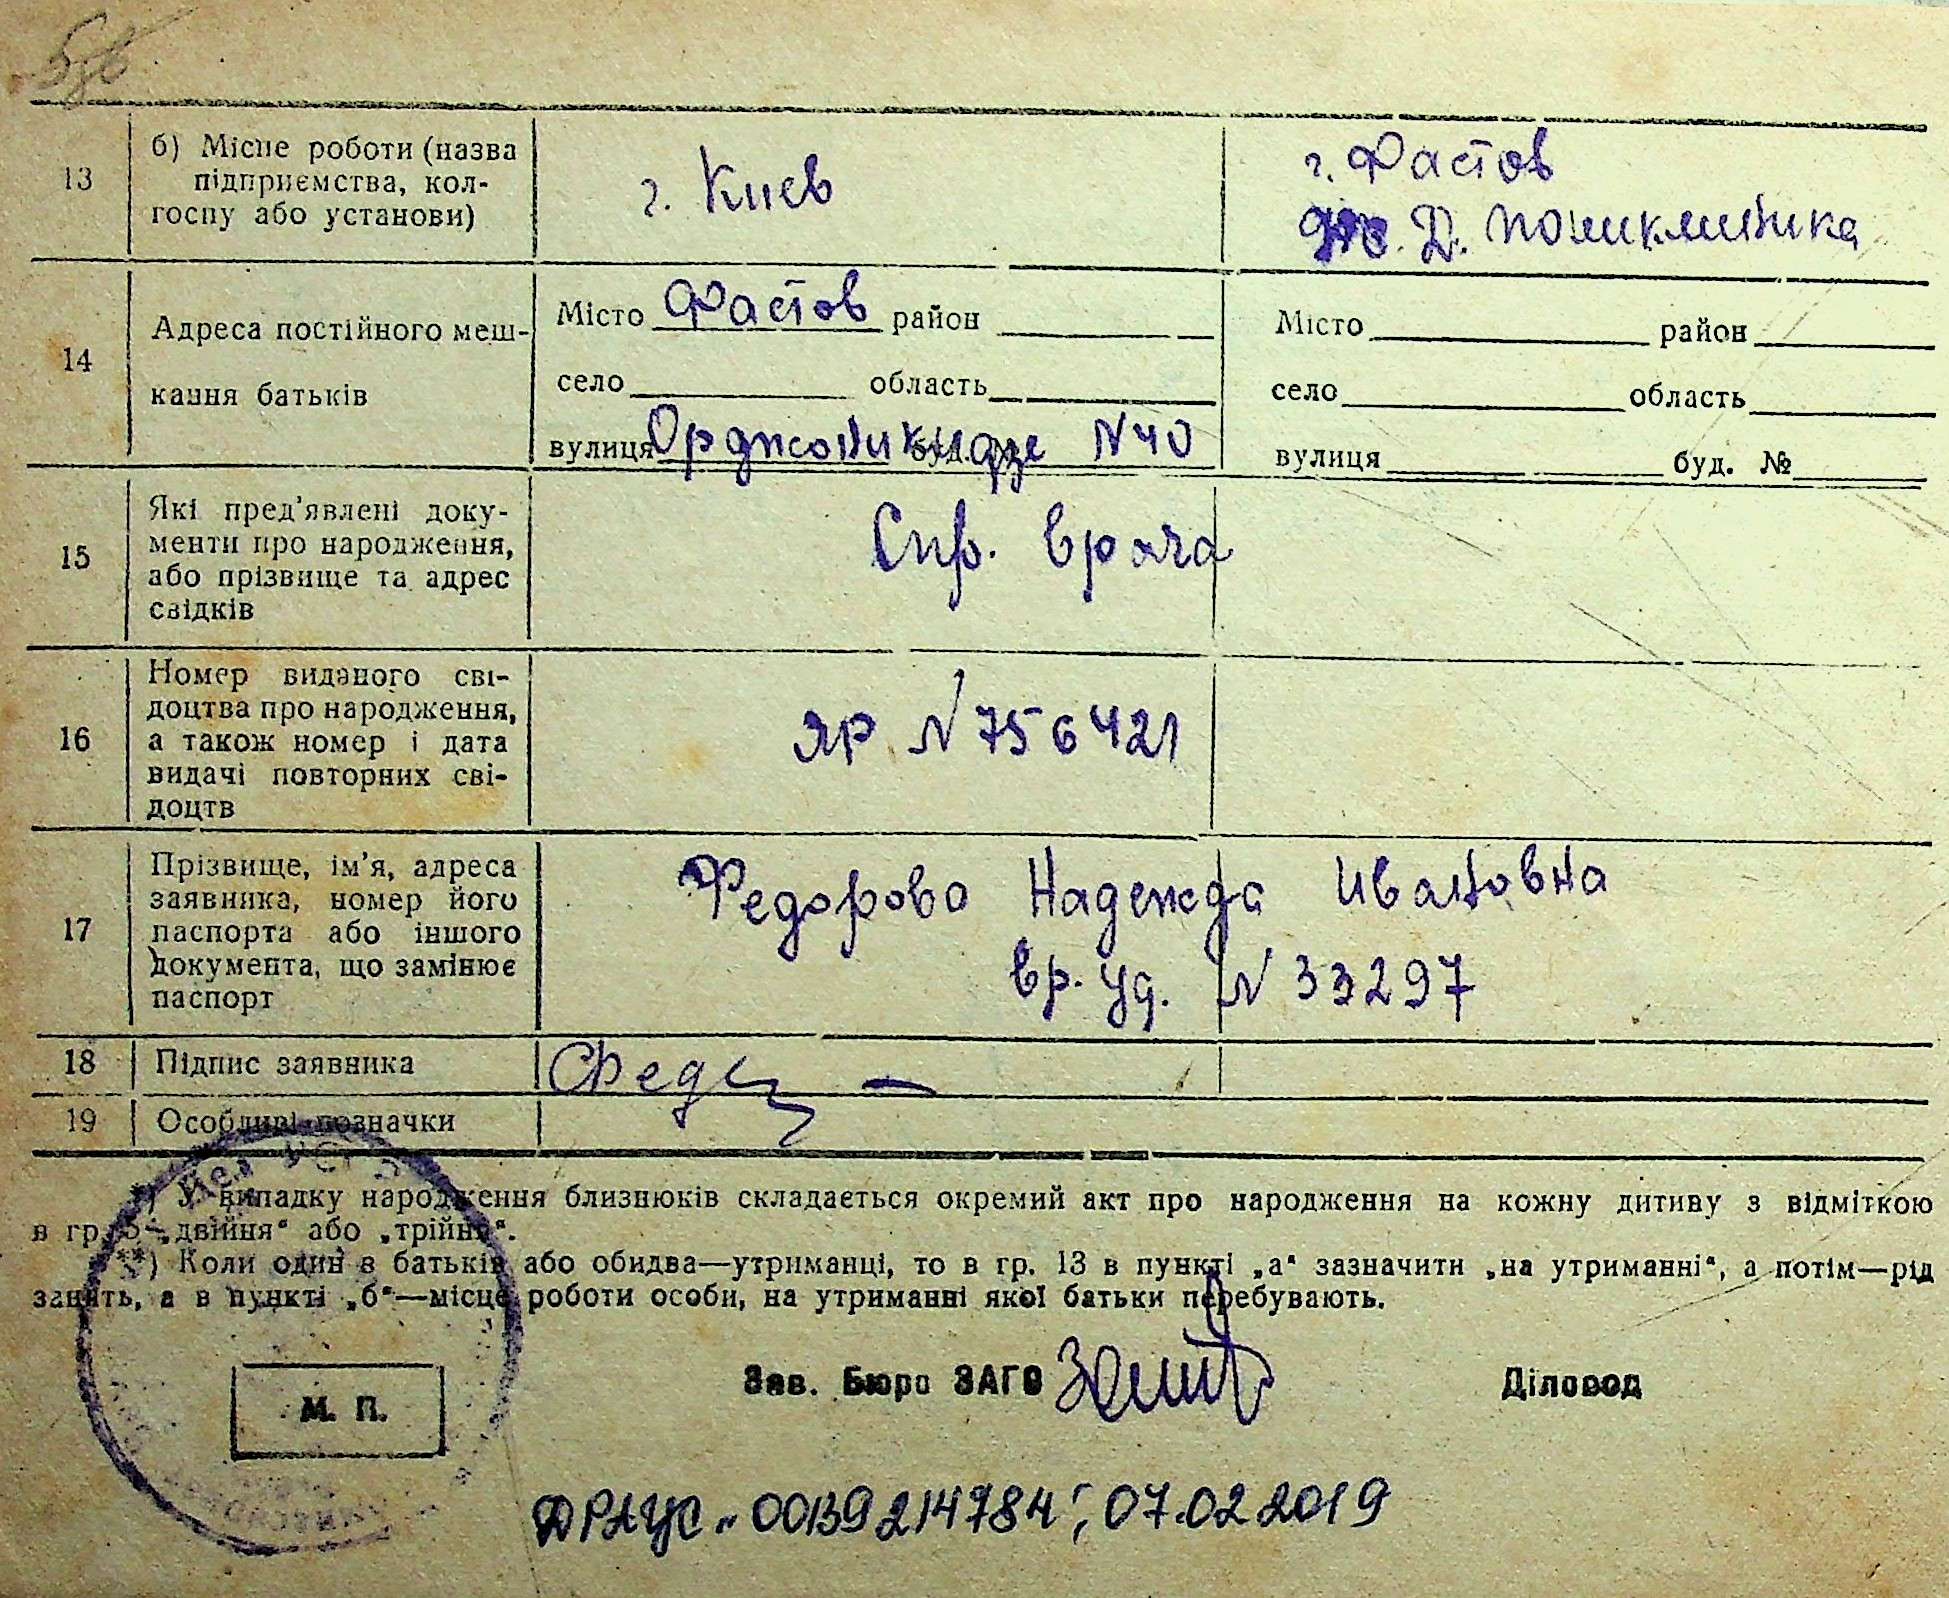 13
б) Місце роботи (назва
підприємства, кол-
госпу або установи)
г. Киев
г. Фастов
Д. поликлиника
14
Адреса постійного меш-
кання батьків
Місто Фастов район
село область
вулиця Орджоникидзе N 40
Місто район
село область
вулиця буд. №
15
Які пред'явлені доку-
менти про народження,
або прізвище та адрес
свідків
Спр. врача
16
Номер виданого сві-
доцтва про народження,
а також номер і дата
видачі повторних сві-
доцтв
ЯР N 756421
17
Прізвище, ім'я, адреса
заявника, номер його
паспорта або іншого
документа, що замінює
паспорт
Федорова Надежда Ивановна
вр. уд. N 33297
18
Підпис заявника
19
Особливі позначки
*) У випадку народження близнюків складається окремий акт про народження на кожну дитину з відміткою
в гр. 5 „двійня“ або „трійня“.
**) Коли один з батьків або обидва—утриманці, то в гр. 13 в пункті „а“ зазначити „на утриманні“, а потім—рід
занять, а в пункті „б“—місце роботи особи, на утриманні якої батьки перебувають.
М. П.
Зав. Бюро ЗАГС
Діловод
ДРАЦС „00139214784“, 07.02 2019